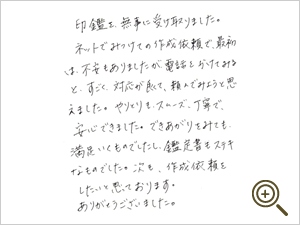 印鑑を、無事に受け取りました。
ネットでみつけての作成依頼で、最初
は、不安もありましたが電話をかけてみる
と、すごく、対応が良くて、頼んでみようと思
えました。やりとりも、スムーズ、丁寧で、
安心できました。できあがりをみても、
満足いくものでしたし、鑑定書もステキ
なものでした。次も、作成依頼を
したいと思っております。
ありがとうございました。